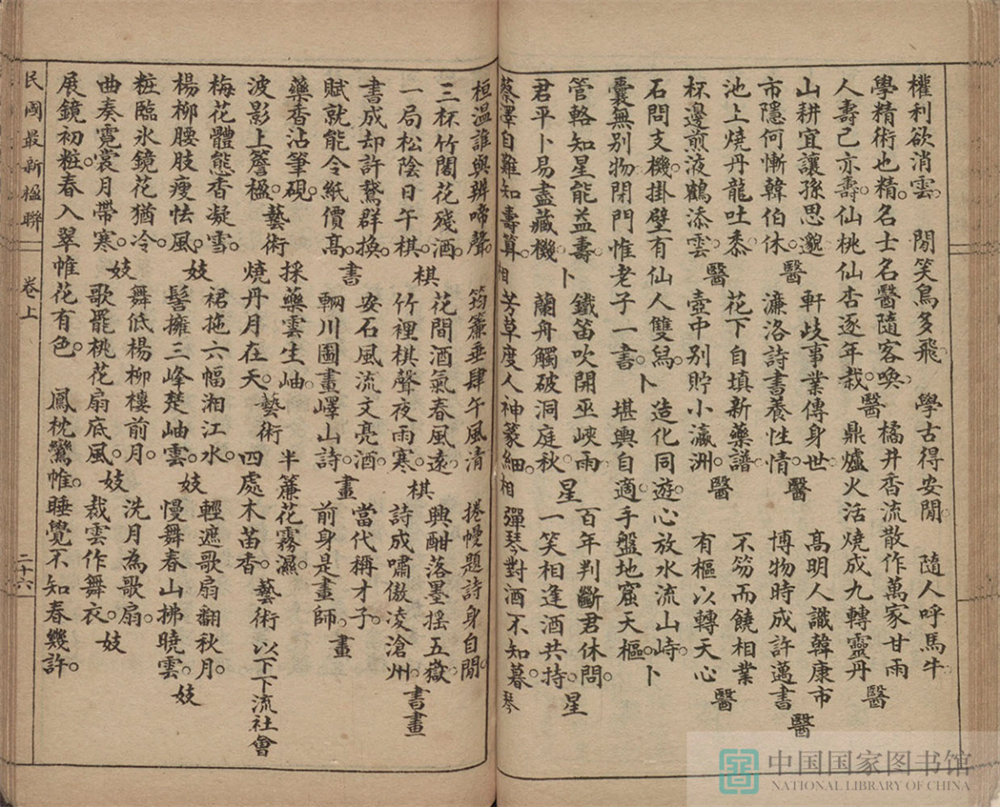 權利欲消雲。閒笑鳥多飛。學古得安閒　隨人呼馬牛
學精術也精。名士名醫隨客喚。醫　橘井香流散作萬家甘雨
人壽己亦壽。仙桃仙杏逐年栽。　鼎爐火活燒成九轉靈丹　醫
山耕宜讓孫思邈　軒歧事業傳身世。高明人識韓康市
市隱何慚韓伯休。醫　濂洛詩書養性情。醫　博物時成許邁書　醫
池上燒丹龍吐黍　花下自填新藥譜　不笏而饒相業
杯邊煎液鶴添雲。醫　壺中別貯小瀛洲。醫　有樞以轉天心　醫
石問支機。掛壁有仙人雙舄。卜　造化同遊。心放水流山峙。卜
囊無別物。閉門惟老子一書。　堪輿自適。手盤地窟天樞
管輅知星能益壽。　鐵笛吹開巫峽雨　百年判斷君休問。
君平卜易盡藏機。卜　蘭舟觸破洞庭秋。星　一笑相逢酒共持。星
蔡澤自難知壽算。相　芳草度人神篆細。相　彈琴對酒不知暮。琴
桓溫誰與辨啼聲　筠簾垂肆午風清　捲幔題詩身自閒。
三杯竹閣花殘酒。　花間酒氣春風遠。　興酣落墨搖五嶽。
一局松陰日午棋。棋　竹裡棋聲夜雨寒。棋　詩成嘯傲凌滄州　書畫
書成却許鵞群換。　安石風流文亮酒。　當代稱才子。
賦就能令紙價高。書　輞川圖畫嶧山詩。畫　前身是畫師。畫
藥香沾筆硯。　採藥雲生岫。　半簾花霧濕。
波影上簷楹。藝術　燒丹月在天。藝術　四處木苗香。藝術　以下下流社會
梅花體態香凝雪　裙拖六幅湘江水。　輕遮歌扇翻秋月。
楊柳腰肢瘦怯風。妓　髻擁三峰楚岫雲。妓　慢舞春山拂曉雲。妓
粧臨氷鏡花猶冷。　舞低楊柳樓前月。　洗月為歌扇。
曲奏霓裳月帶寒。妓　歌罷桃花扇底風。妓　裁雲作舞衣。妓
展鏡初粧春入翠帷花有色。　鳳枕鸞帷。睡覺不知春幾許。
民國最新楹聯　卷上　二十六
中国国家图书馆
NATIONAL LIBRARY OF CHINA